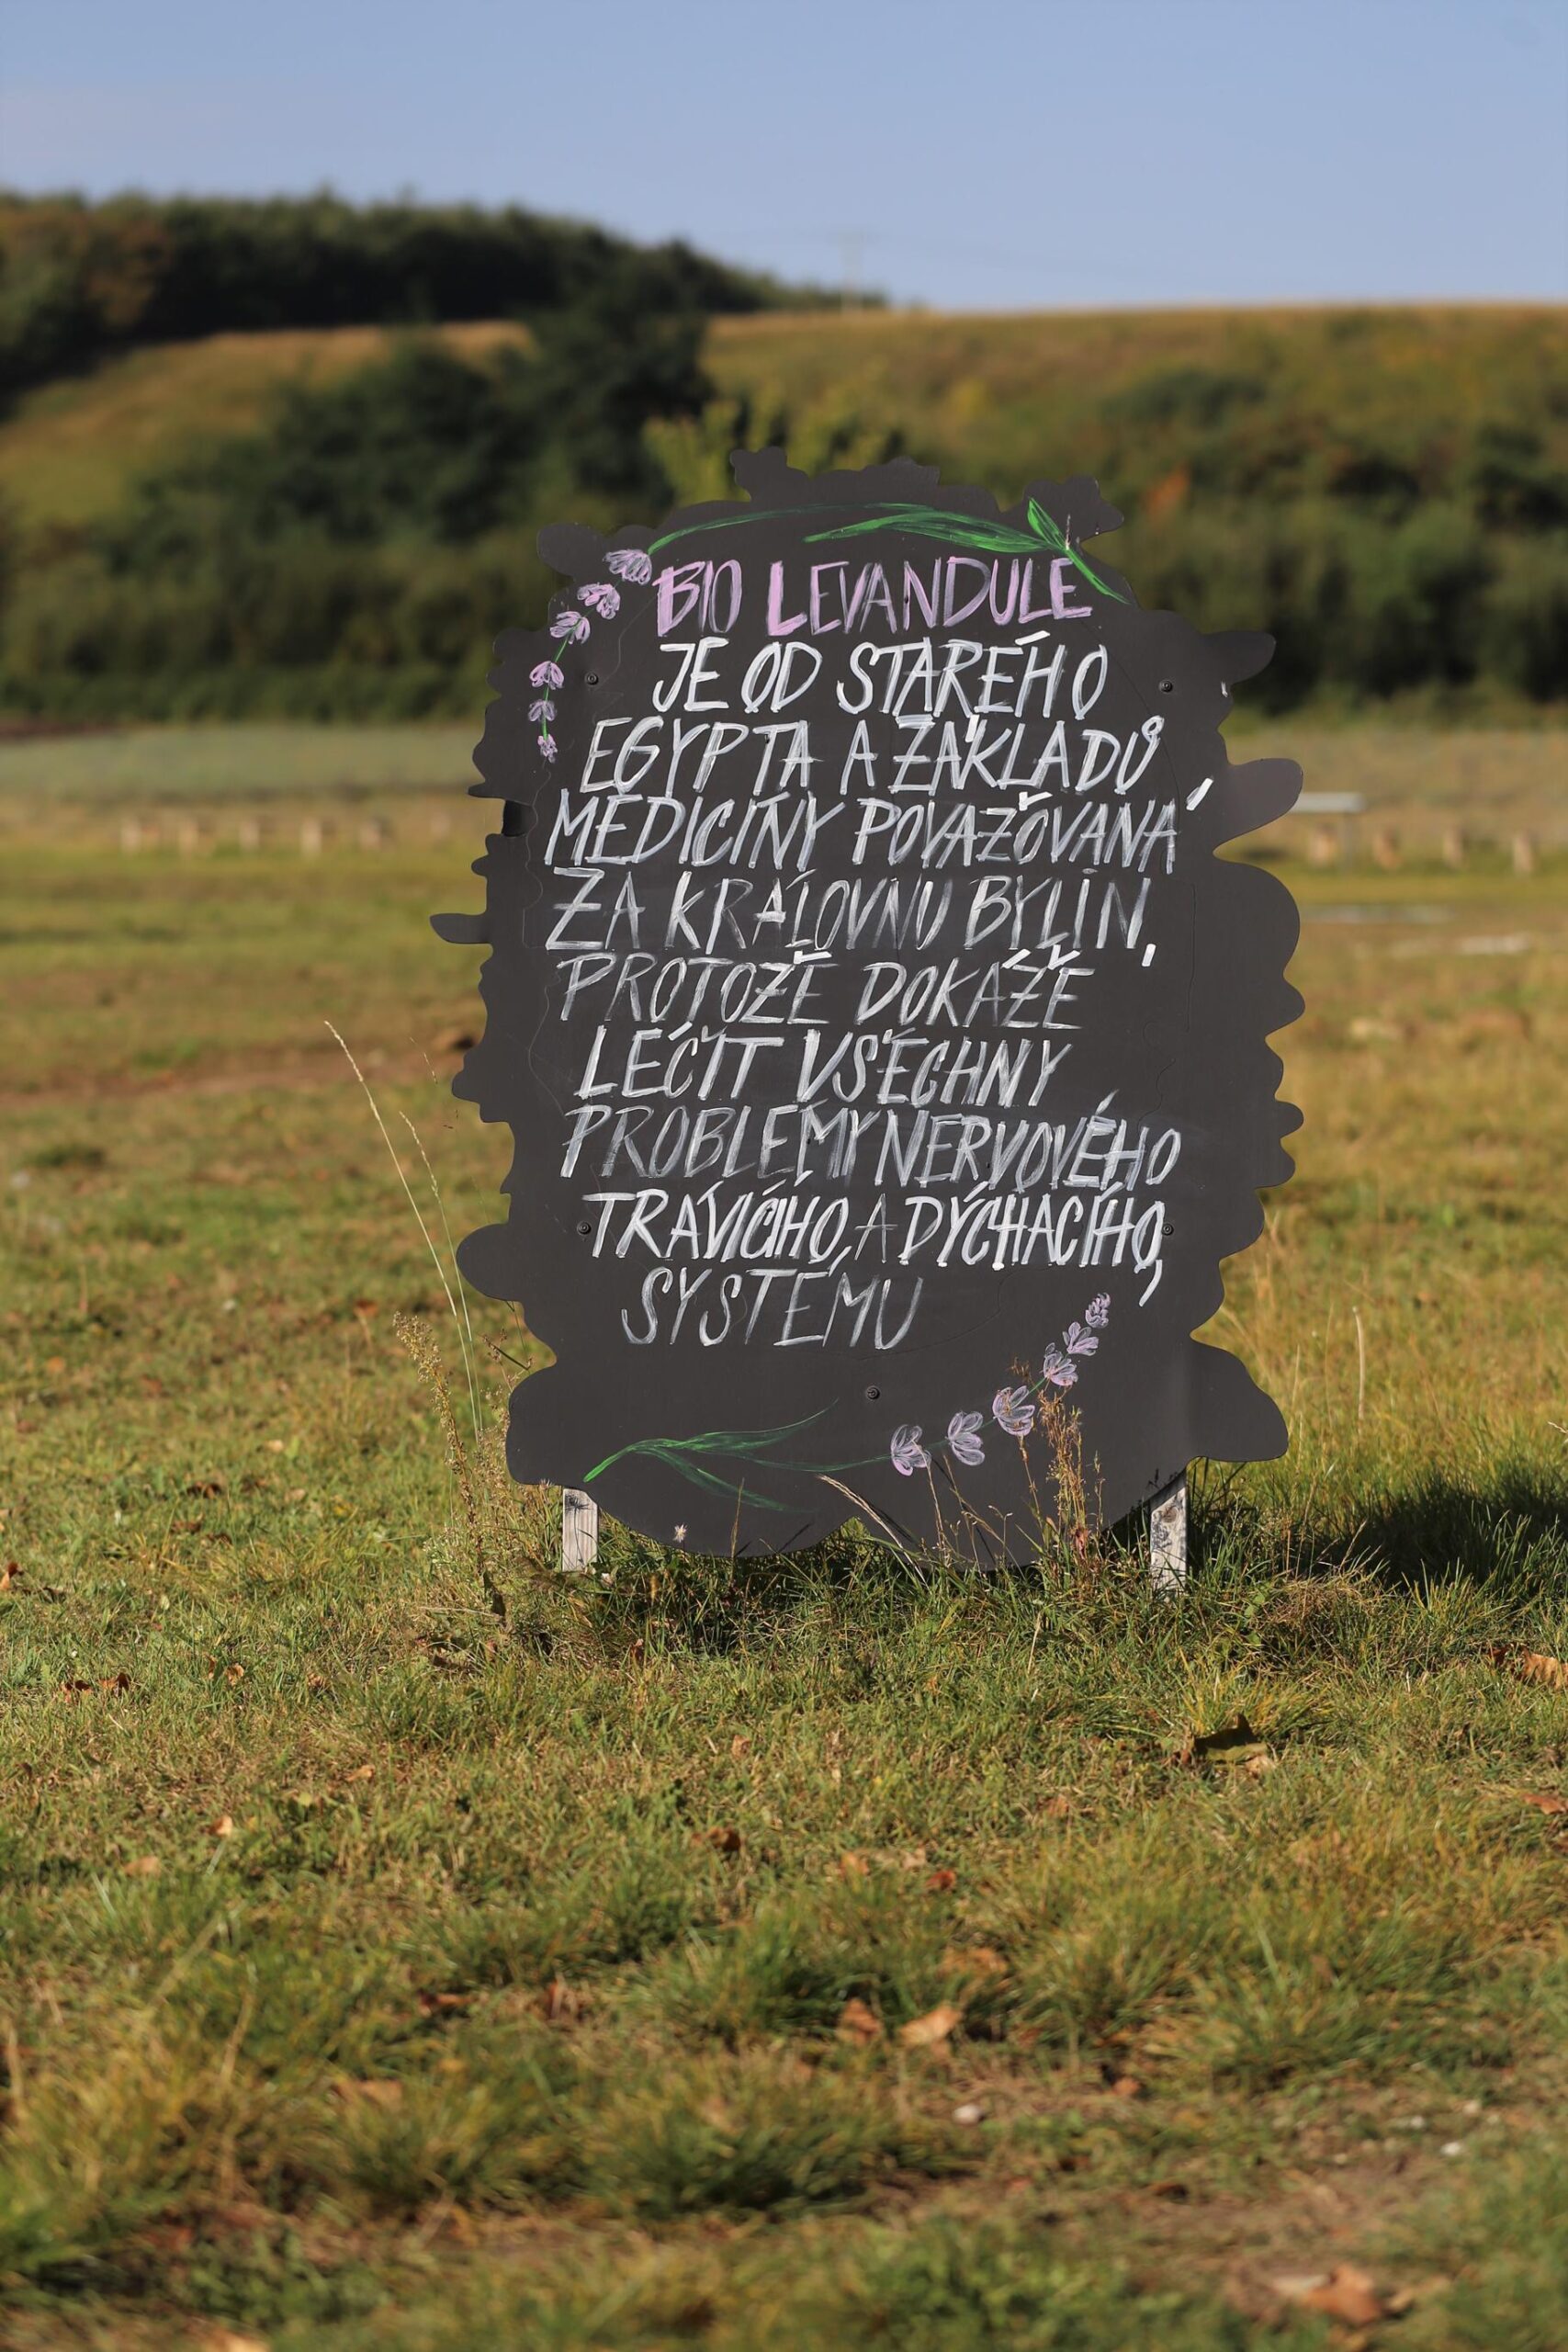 BIO LEVANDULE
JE OD STARÉHO
EGYPTA A ZÁKLADŮ
MEDICÍNY POVAŽOVÁNA
ZA KRÁLOVNU BYLIN,
PROTOŽE DOKÁŽE
LÉČIT VŠECHNY
PROBLÉMY NERVOVÉHO
TRÁVICÍHO, A DÝCHACÍHO,
SYSTÉMU